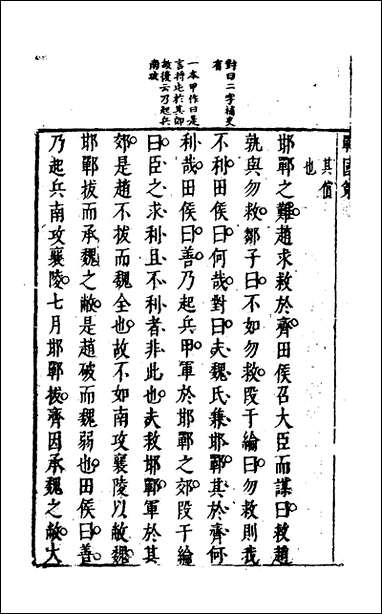 對曰二字補史
省
一本甲作曰是
言將屯於其郊
故後云乃起兵
南攻
戰國策
其值
也
邯鄲之難趙求救於齊田侯召大臣而謀曰救趙
孰與勿救鄒子曰不如勿救段干綸曰勿救則我
不利田侯曰何哉對曰夫魏氏兼邯鄲其於齊何
利哉田侯曰善乃起兵甲軍於邯鄲之郊段干綸
曰臣之求利且不利者非此也夫救邯鄲軍於其
郊是趙不拔而魏全也故不如南攻襄陵以敝魏
邯鄲拔而承魏之敝是趙破而魏弱也田侯曰善
乃起兵南攻襄陵七月邯鄲拔齊因承魏之敝大